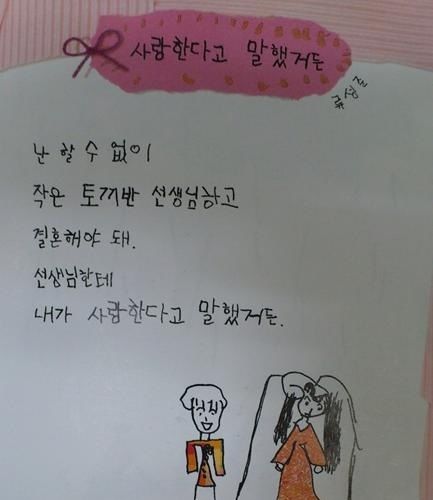 사랑한다고 말했거든
난 할 수 없이
작은 토끼반 선생님하고
결혼해야 돼.
선생님한테
내가 사랑한다고 말했거든.